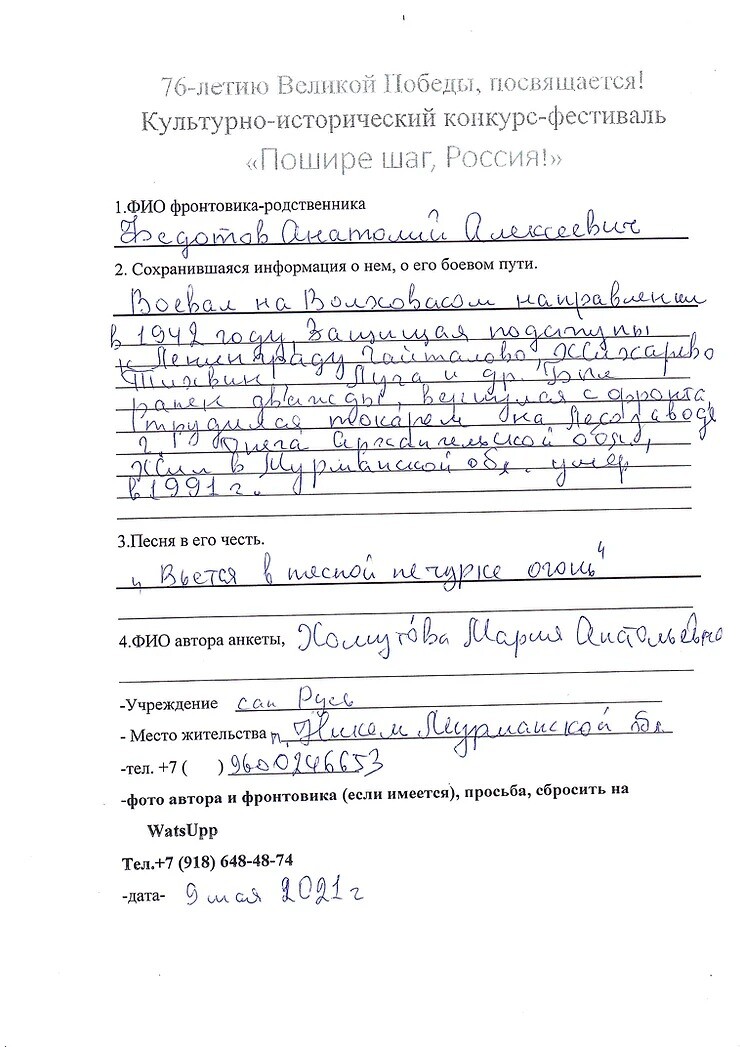 76-летию Великой Победы, посвящается!
Культурно-исторический конкурс-фестиваль
«Пошире шаг, Россия!»
1.ФИО фронтовика-родственника
Федотов Анатолий Алексеевич
2. Сохранившаяся информация о нем, о его боевом пути.
Воевал на Волховском направлении
в 1942 году, защищая подступы
к Ленинграду Гайталово, Жихарево
Тихвин, Луга и др. Был
ранен дважды, вернулся с фронта,
трудился токарем на Лесозаводе
г. Онега Архангельской обл.,
Жил в Мурманской обл. умер
в 1991 г.
3.Песня в его честь.
„Вьется в тесной печурке огонь"
4.ФИО автора анкеты, Хомутова Мария Анатольевна
-Учреждение сан Русь
- Место жительства п. Никель Мурманской обл
-тел. +7 ( ) 9600246653
-фото автора и фронтовика (если имеется), просьба, сбросить на
WatsUpp
Тел.+7 (918) 648-48-74
-дата- 9 мая 2021 г